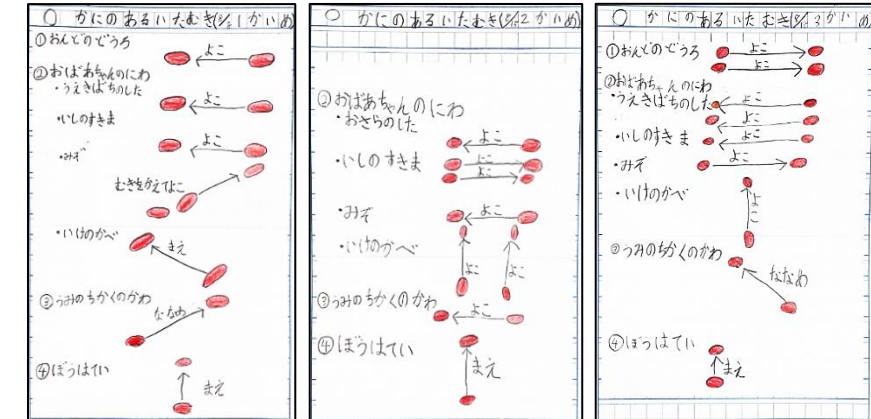 かにのあるいたむき(8/ 1かいめ)
①おんどのどうろ
よこ
②おばあちゃんのにわ
・うえきばちのした
よこ
・いしのすきま
よこ
・みぞ
むきをかえてよこ
・いけのかべ
まえ
③うみのちかくのかわ
ななめ
④ぼうはてい
まえ
かにのあるいたむき(8/12 2かいめ)
②おばあちゃんのにわ
・おさらのした
よこ
・いしのすきま
よこ
よこ
・みぞ
よこ
・いけのかべ
よこ
よこ
③うみのちかくのかわ
よこ
④ぼうはてい
まえ
かにのあるいたむき(8/ 3かいめ)
①おんどのどうろ
よこ
よこ
②おばあちゃんのにわ
・うえきばちのした
よこ
よこ
・いしのすきま
よこ
・みぞ
よこ
・いけのかべ
よこ
③うみのちかくのかわ
ななめ
④ぼうはてい
まえ